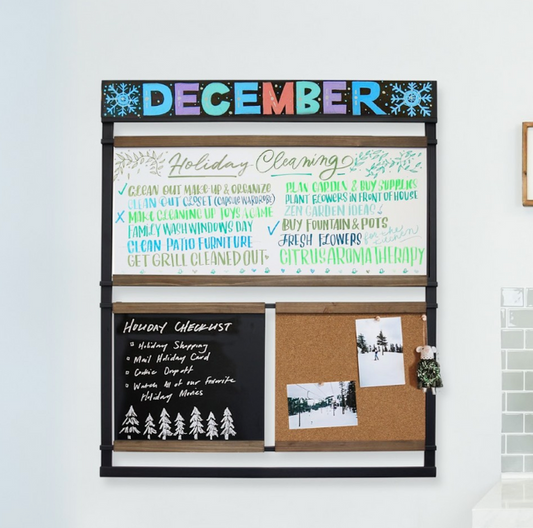 DECEMBER
Holiday Cleaning
✓ CLEAN OUT MAKE UP & ORGANIZE
CLEAN OUT CLOSET (CAPSULE WARDROBE)
X MAKE CLEANING UP TOYS A GAME
FAMILY WASH WINDOWS DAY
CLEAN PATIO FURNITURE
GET GRILL CLEANED OUT
PLAN GARDEN & BUY SUPPLIES
PLANT FLOWERS IN FRONT OF HOUSE
ZEN GARDEN IDEAS
✓ BUY FOUNTAIN & POTS
FRESH FLOWERS for the
CITRUS AROMATHERAPY
HOLIDAY CHECKLIST
Holiday Shopping
Mail Holiday Card
Cookie Dropoff
Watch all of our Favorite
Holiday Movies